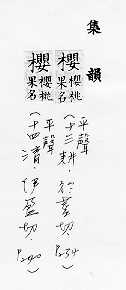 集韻
櫻 櫻桃果名
平聲
(十三耕.於莖切.P.234)
櫻 櫻桃果名
平聲
(十四清.伊盈切.P.240)